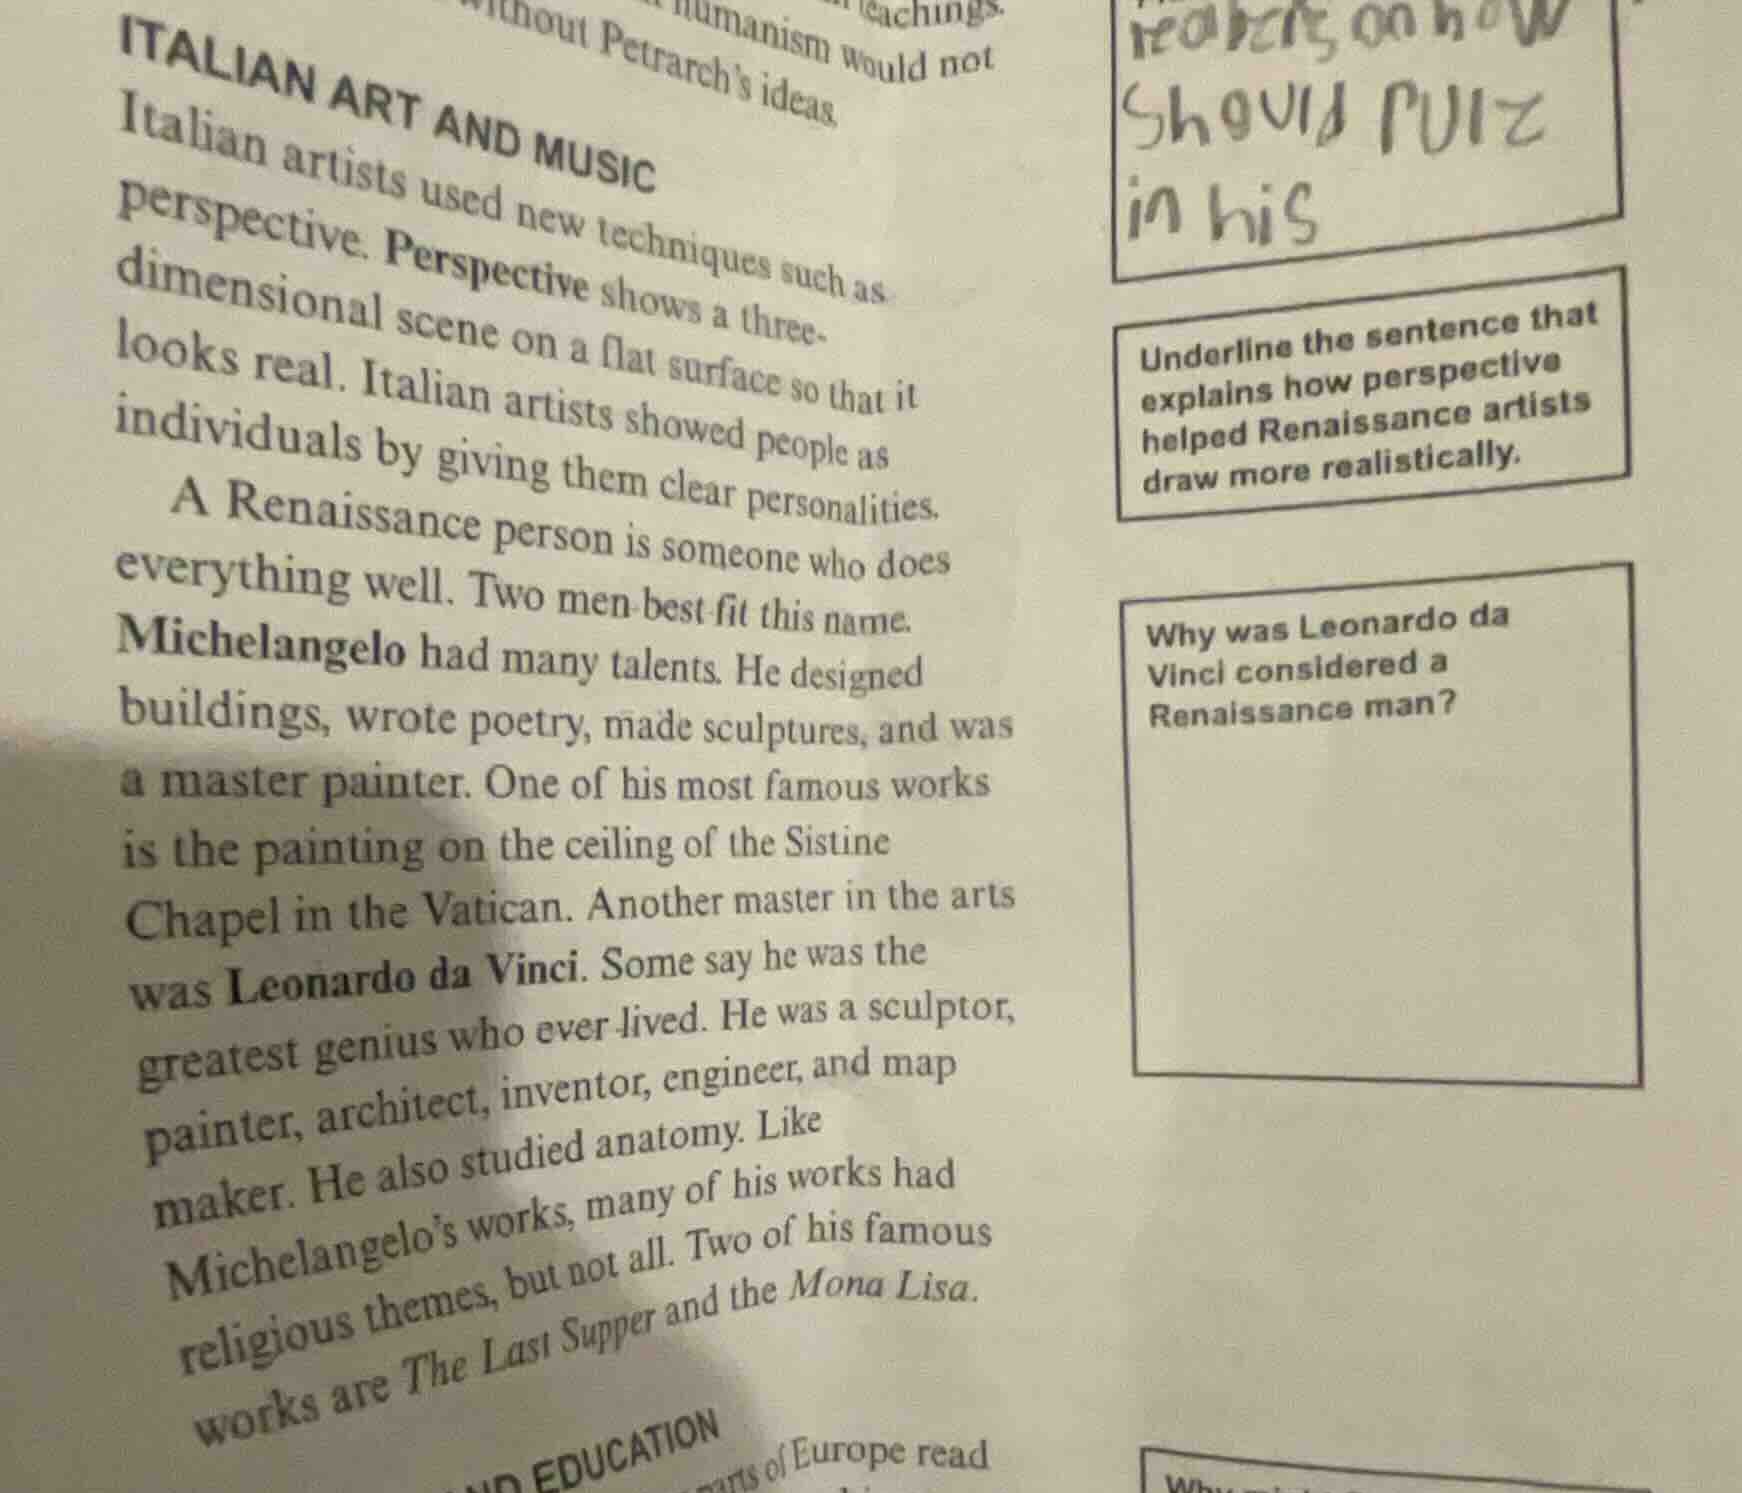 teachings.
humanism would not
without Petrarch's ideas.
ITALIAN ART AND MUSIC
Italian artists used new techniques such as
perspective. Perspective shows a three-
dimensional scene on a flat surface so that it
looks real. Italian artists showed people as
individuals by giving them clear personalities.
A Renaissance person is someone who does
everything well. Two men best fit this name.
Michelangelo had many talents. He designed
buildings, wrote poetry, made sculptures, and was
a master painter. One of his most famous works
is the painting on the ceiling of the Sistine
Chapel in the Vatican. Another master in the arts
was Leonardo da Vinci. Some say he was the
greatest genius who ever lived. He was a sculptor,
painter, architect, inventor, engineer, and map
maker. He also studied anatomy. Like
Michelangelo's works, many of his works had
religious themes, but not all. Two of his famous
works are The Last Supper and the Mona Lisa.
EDUCATION
of Europe read
on how
should rule
in his
Underline the sentence that
explains how perspective
helped Renaissance artists
draw more realistically.
Why was Leonardo da
Vinci considered a
Renaissance man?
Why